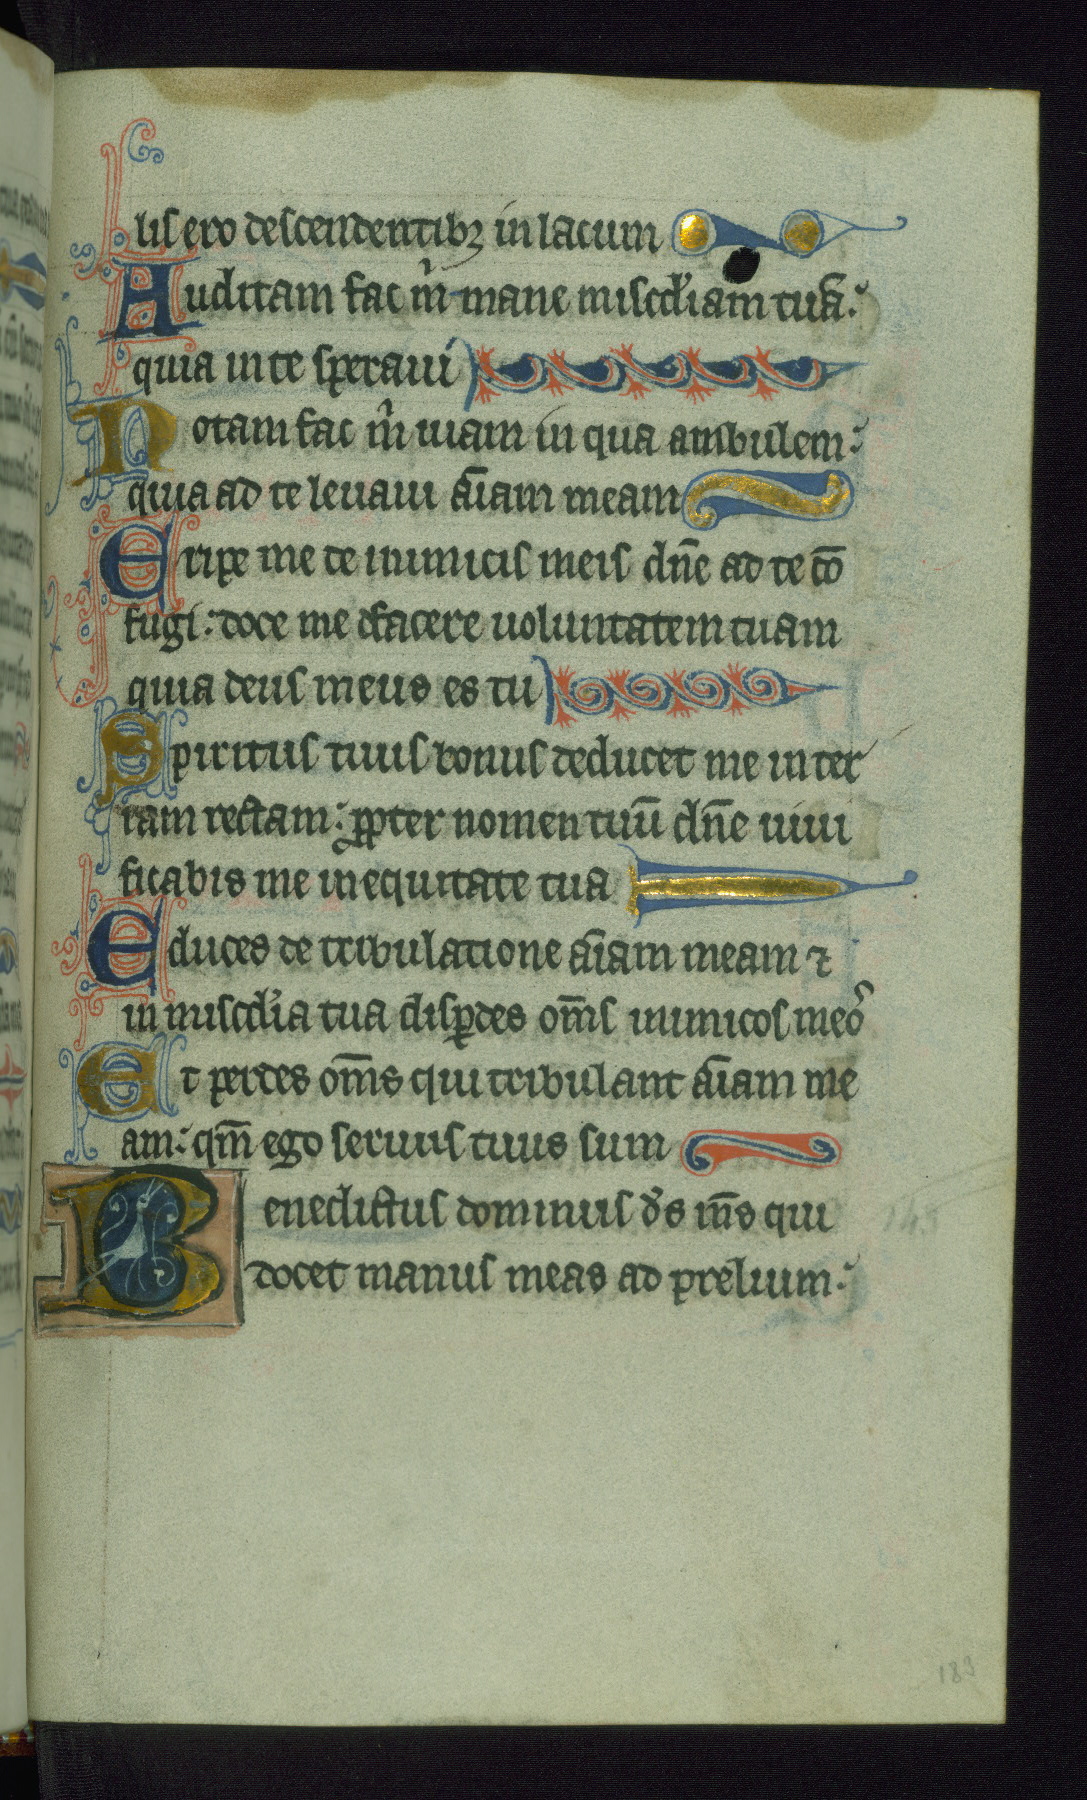 lis ero descendentibꝫ in lacum
Auditam fac m̃ mane miscd̓iam tuã:
quia in te speraui
Notam fac m̃ uiam in qua ambulem:
quia ad te leuaui ãiam meam
Eripe me de inimicis meis dñe ad te cõ
fugi: doce me facere uoluntatem tuam
quia deus meus es tu
Spiritus tuus bonus deducet me in ter
ram rectam: ꝓpter nomen tuũ dñe uiui
ficabis me in equitate tua
Educes de tribulatione ãiam meam ⁊
in miscd̓ia tua disꝑdes om̃s inimicos meos
Et perdes om̃s qui tribulant ãiam me
am: qm̃ ego seruus tuus sum
Benedictus dominus d̓s m̃s qui
docet manus meas ad prelium:
143
183